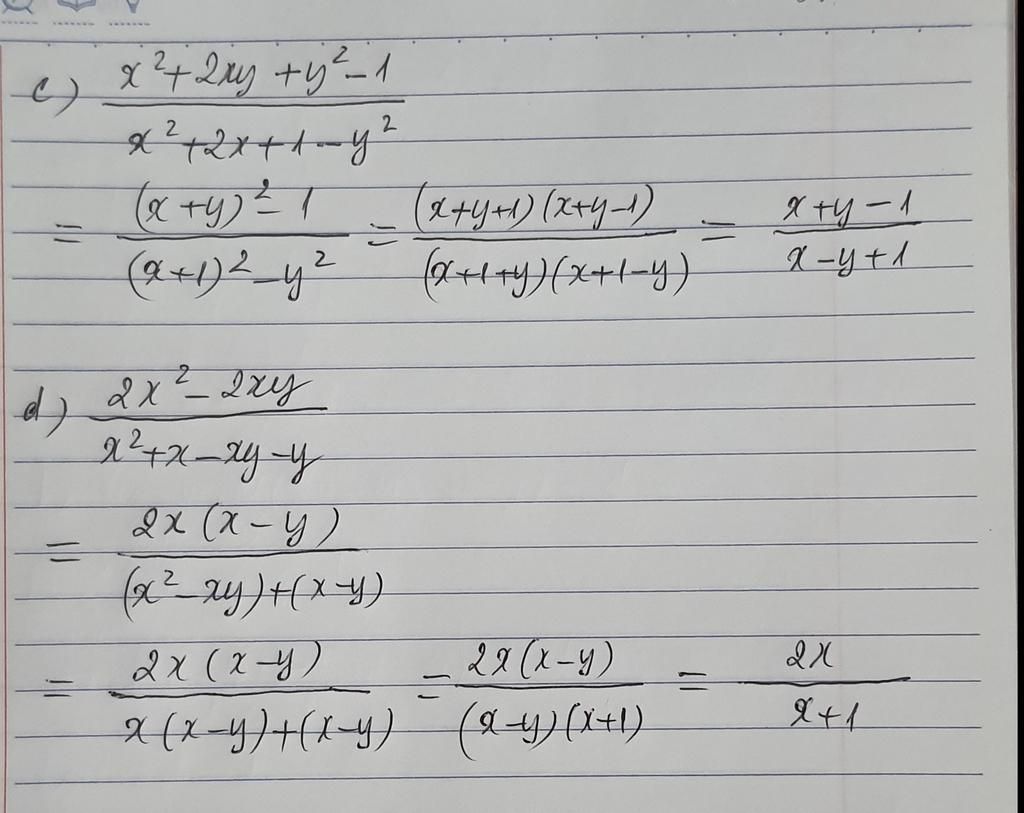 c) (x²+2xy+y²-1)/(x²+2x+1-y²)
= ((x+y)²-1)/((x+1)²-y²) = ((x+y+1)(x+y-1))/((x+1+y)(x+1-y)) = (x+y-1)/(x-y+1)
d) (2x²-2xy)/(x²+x-xy-y)
= (2x(x-y))/((x²-xy)+(x-y))
= (2x(x-y))/(x(x-y)+(x-y)) = (2x(x-y))/((x-y)(x+1)) = (2x)/(x+1)